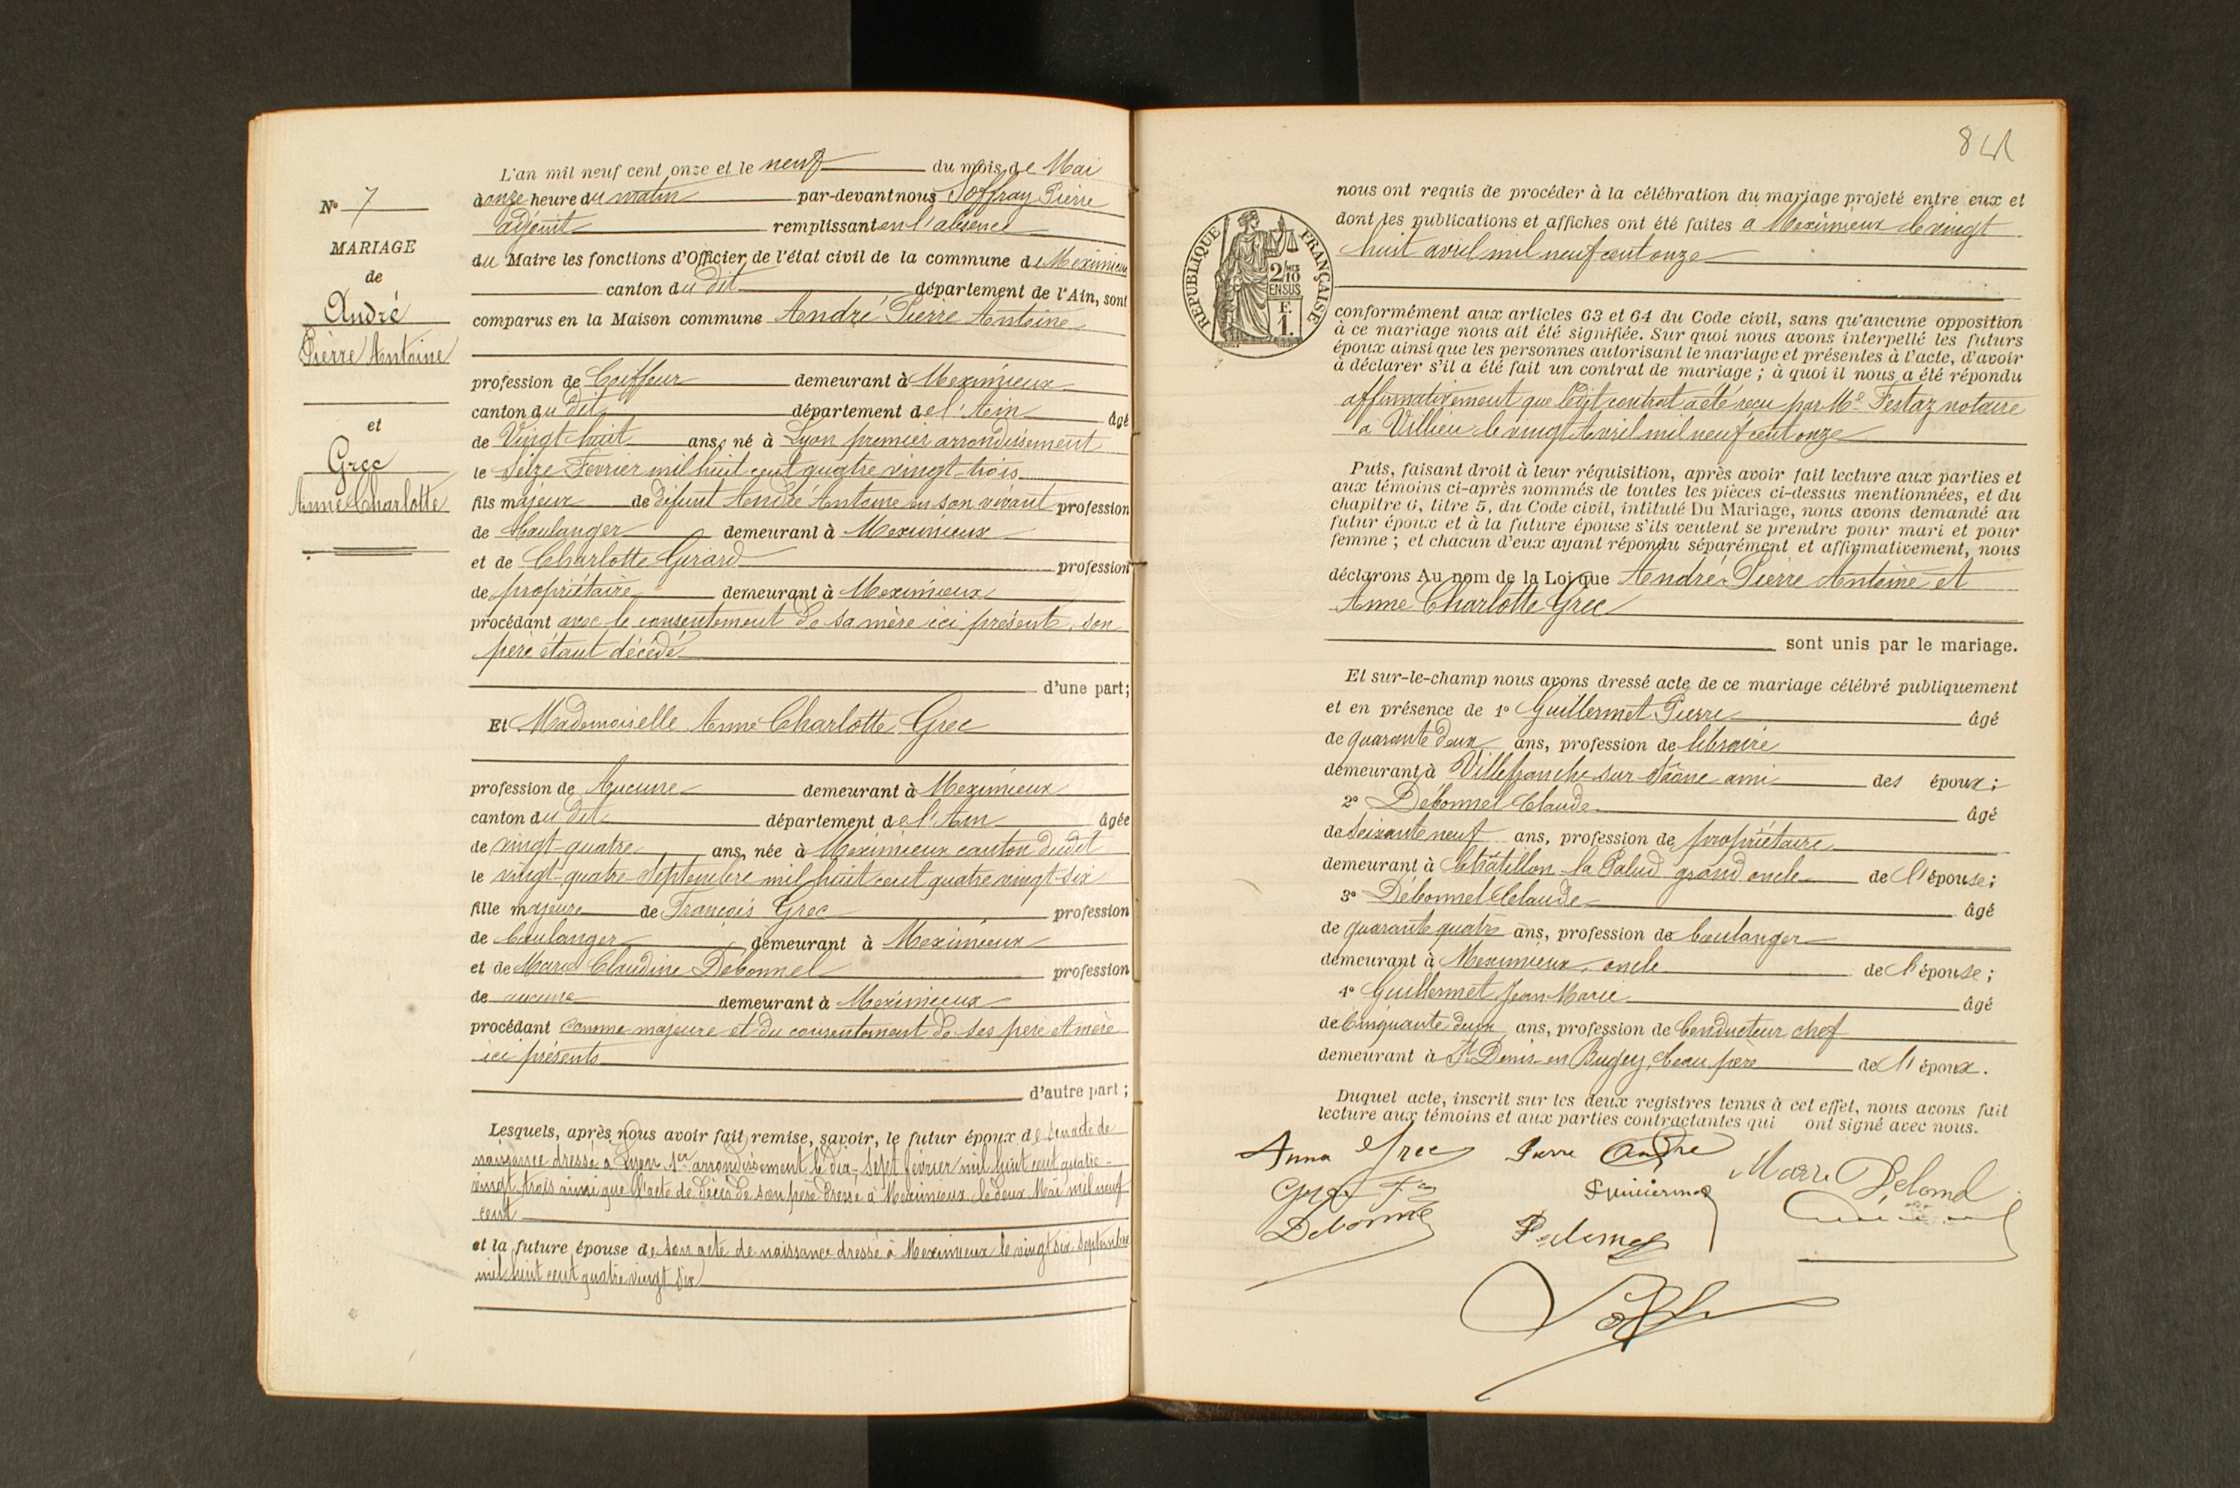 N° 7
MARIAGE
de
André
Pierre Antoine
et
Grec
Anne Charlotte
L'an mil neuf cent onze et le neuf du mois de Mai
à onze heure du matin par-devant nous Joffray Pierre
adjoint remplissant en l'absence
du Maire les fonctions d'Officier de l'état civil de la commune de Meximieux
canton du dit département de l'Ain, sont
comparus en la Maison commune André Pierre Antoine
profession de Coiffeur demeurant à Meximieux
canton du dit département de l'Ain âgé
de Vingt huit ans, né à Lyon premier arrondissement
le Seize Fevrier mil huit cent quatre vingt-trois
fils majeur de défunt André Antoine en son vivant profession
de boulanger demeurant à Meximieux
et de Charlotte Girard profession
de propriétaire demeurant à Meximieux
procédant avec le consentement de sa mère ici présente, son
père étant décédé
d'une part;
Et Mademoiselle Anne Charlotte Grec
profession de Aucune demeurant à Meximieux
canton du dit département de l'Ain âgée
de vingt-quatre ans, née à Meximieux canton dudit
le vingt-quatre Septembre mil huit cent quatre vingt-six
fille majeure de François Grec profession
de boulanger demeurant à Meximieux
et de Marie Claudine Débonnel profession
de aucune demeurant à Meximieux
procédant comme majeure et du consentement de ses père et mère
ici présents
d'autre part;
Lesquels, après nous avoir fait remise, savoir, le futur époux de son acte de
naissance dressé à Lyon 1er arrondissement le dix-sept février mil huit cent quatre-
vingt trois ainsi que l'acte de décès de son père dressé à Meximieux le deux Mai mil neuf
cent
et la future épouse de son acte de naissance dressé à Meximieux le vingt six septembre
mil huit cent quatre vingt six
84
RÉPUBLIQUE FRANÇAISE
2/10
EN SUS
F.
1.
nous ont requis de procéder à la célébration du mariage projeté entre eux et
dont les publications et affiches ont été faites a Meximieux le vingt
huit avril mil neuf cent onze
conformément aux articles 63 et 64 du Code civil, sans qu'aucune opposition
à ce mariage nous ait été signifiée. Sur quoi nous avons interpellé les futurs
époux ainsi que les personnes autorisant le mariage et présentes à l'acte, d'avoir
à déclarer s'il a été fait un contrat de mariage; à quoi il nous a été répondu
affirmativement que ledit contrat a été reçu par Me Festaz notaire
a Villieu le vingt Avril mil neuf cent onze
Puis, faisant droit à leur réquisition, après avoir fait lecture aux parties et
aux témoins ci-après nommés de toutes les pièces ci-dessus mentionnées, et du
chapitre 6, titre 5, du Code civil, intitulé Du Mariage, nous avons demandé au
futur époux et à la future épouse s'ils veulent se prendre pour mari et pour
femme; et chacun d'eux ayant répondu séparément et affirmativement, nous
déclarons Au nom de la Loi que André Pierre Antoine et
Anne Charlotte Grec
sont unis par le mariage.
Et sur-le-champ nous avons dressé acte de ce mariage célébré publiquement
et en présence de 1° Guillermet Pierre âgé
de quarante deux ans, profession de libraire
demeurant à Villefranche sur Saône ami des époux;
2° Débonnel Claude âgé
de soixante neuf ans, profession de propriétaire
demeurant à Châtillon la Palud grand oncle de l'épouse;
3° Débonnel Claude âgé
de quarante quatre ans, profession de boulanger
demeurant à Meximieux, oncle de l'épouse;
4° Guillermet Jean Marie âgé
de Cinquante deux ans, profession de Conducteur chef
demeurant à St Denis en Bugey, beau père de l'époux.
Duquel acte, inscrit sur les deux registres tenus à cet effet, nous avons fait
lecture aux témoins et aux parties contractantes qui ont signé avec nous.
Anna Grec Pierre André